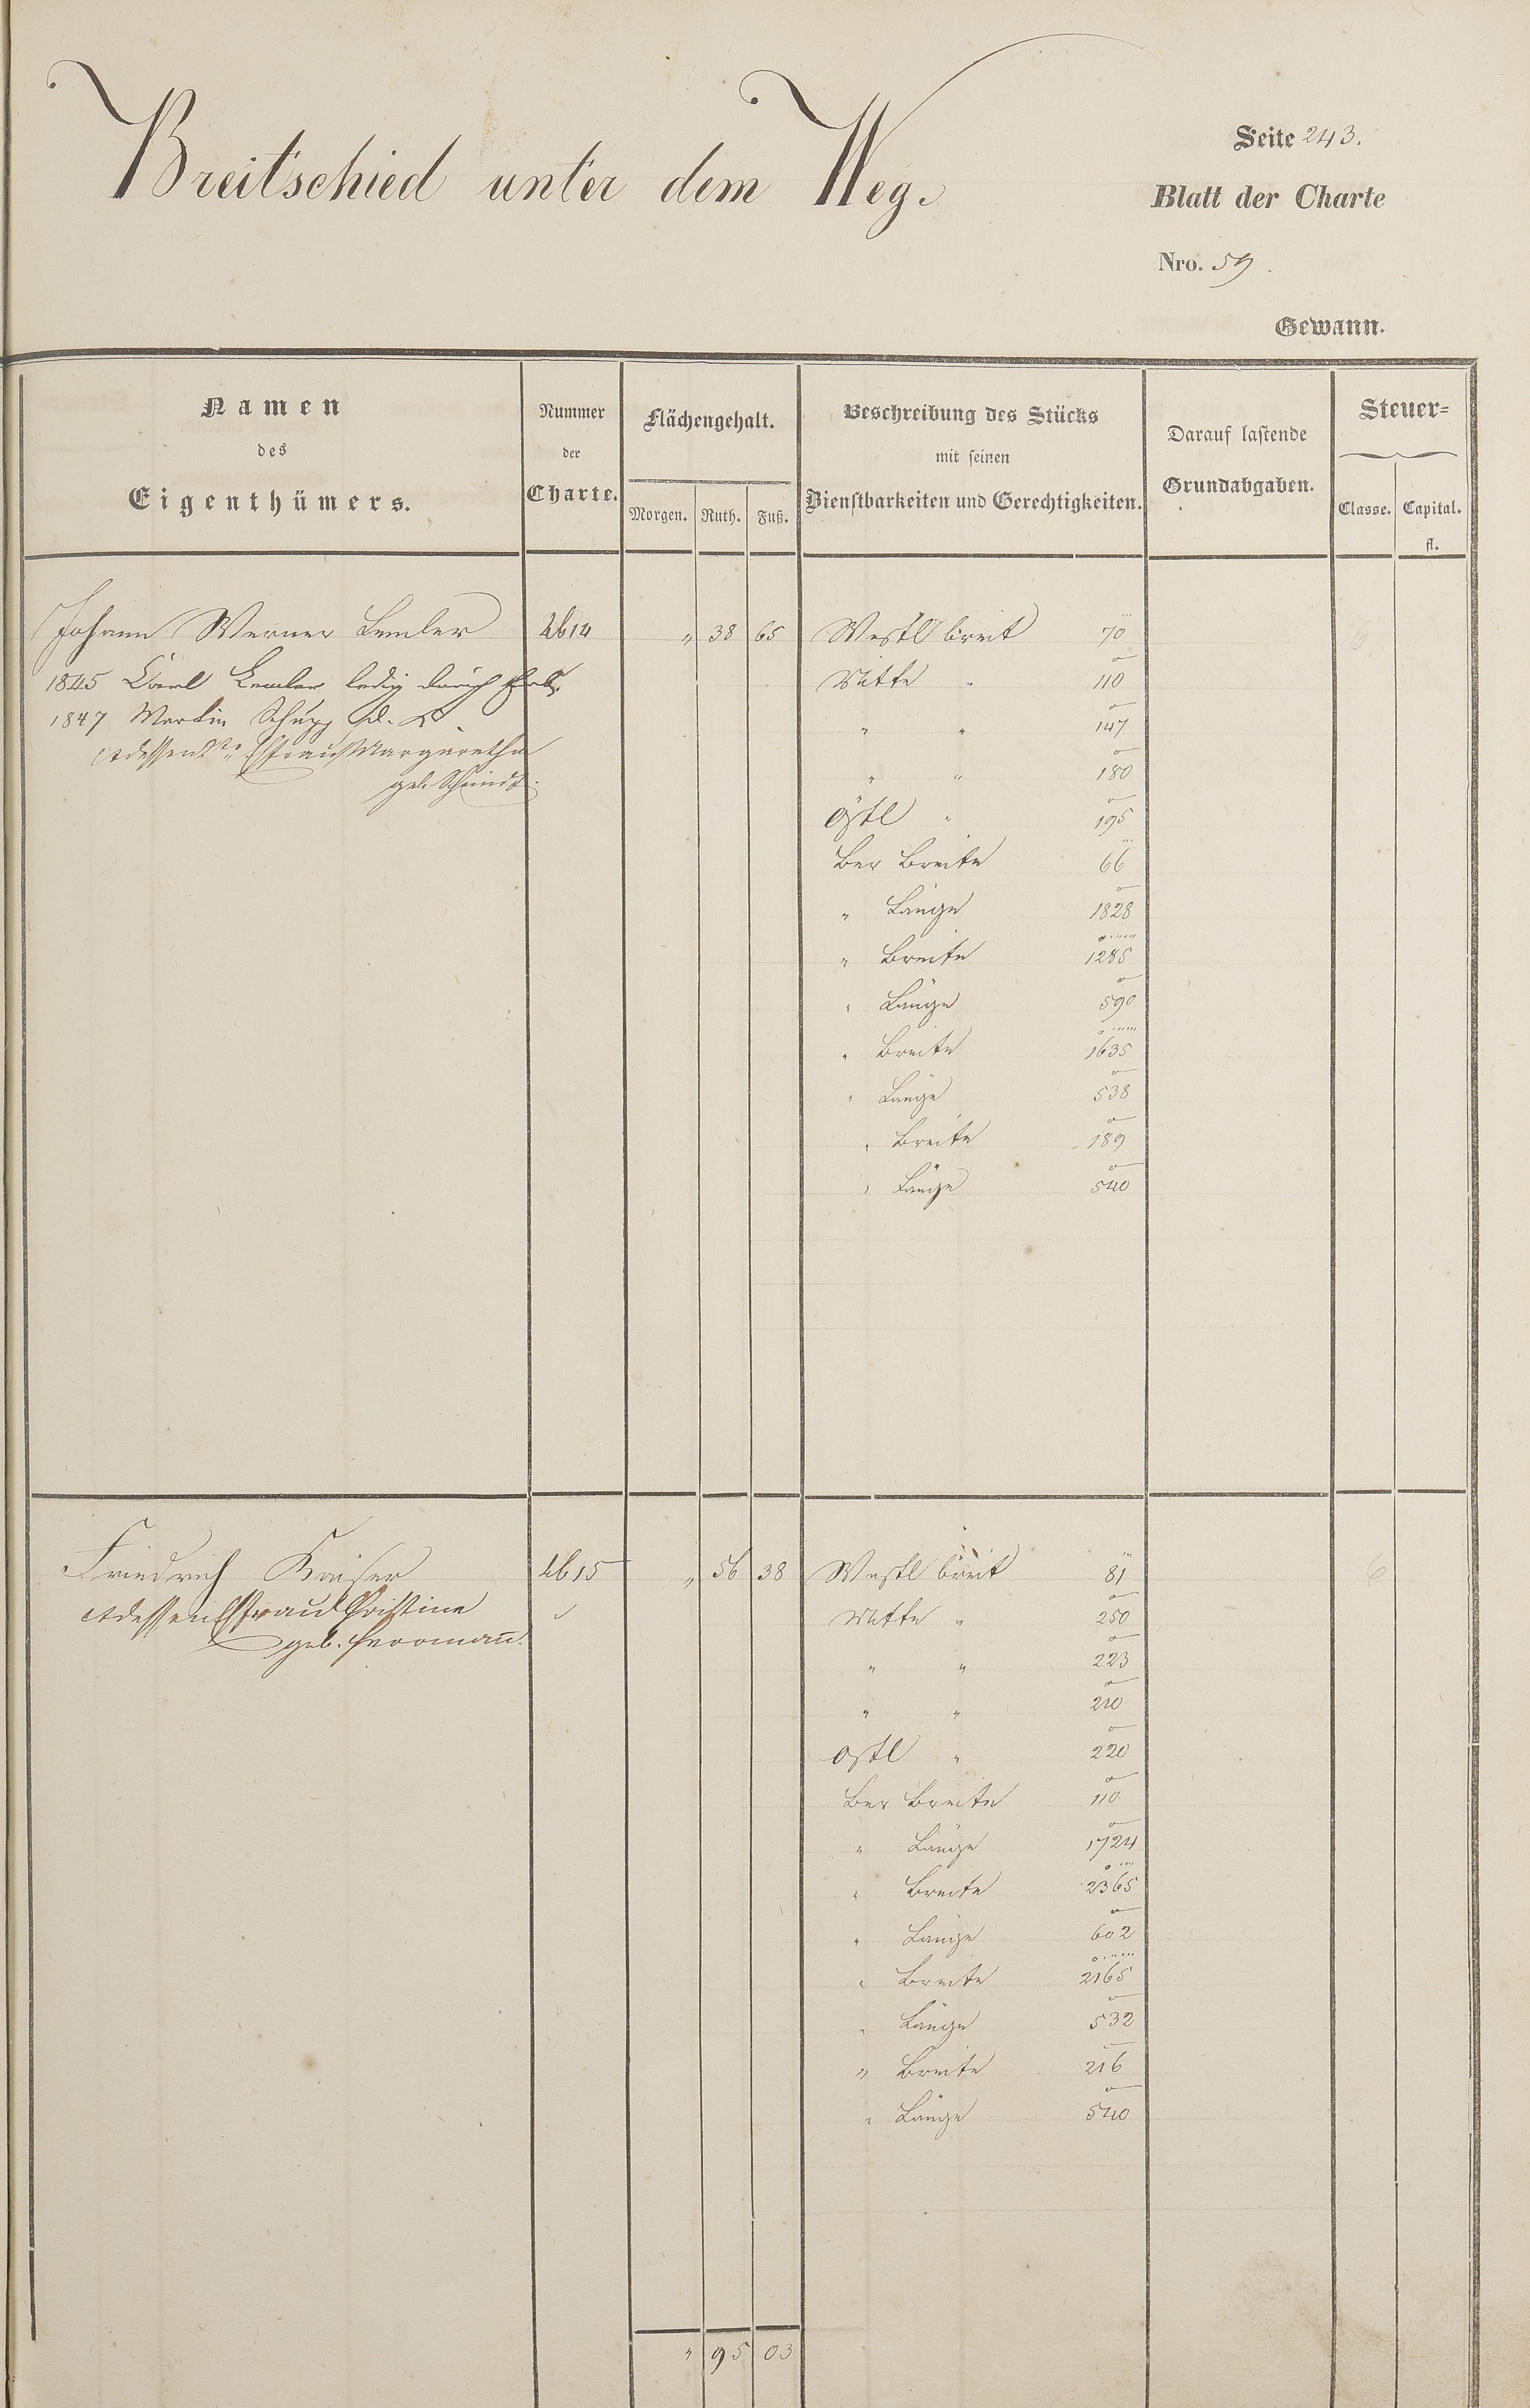 Breitschied unter dem Weg.
Seite 243.
Blatt der Charte
Nro. 59.
Gewann.
Namen
des
Eigenthümers.
Nummer
der
Charte.
Flächengehalt.
Morgen. Ruth. Fuß.
Beschreibung des Stücks
mit seinen
Dienstbarkeiten und Gerechtigkeiten.
Darauf lastende
Grundabgaben.
Steuer=
Classe. Capital.
fl.
Johann Werner Lemler 4614 " 38 65 Westl breit 70
1845 Carl Lemler ledig durch Erb. Mitte " 110
1847 Martin Schupp " " 147
Ehefrau Margaretha " " 180
geb. Schmidt
östl " 195
Ber Breite 66
" Länge 1828
" Breite 1285
" Länge 590
" Breite 1635
" Länge 538
" Breite 189
" Länge 540
Friedrich Kaiser 4615 " 56 38 Westl breit 81 6
dessen Ehefrau Christine Mitte " 250
geb. Herrmann
" " 223
" " 210
östl " 220
Ber Breite 110
" Länge 1724
" Breite 2365
" Länge 602
" Breite 2165
" Länge 532
" Breite 216
" Länge 540
" 95 03